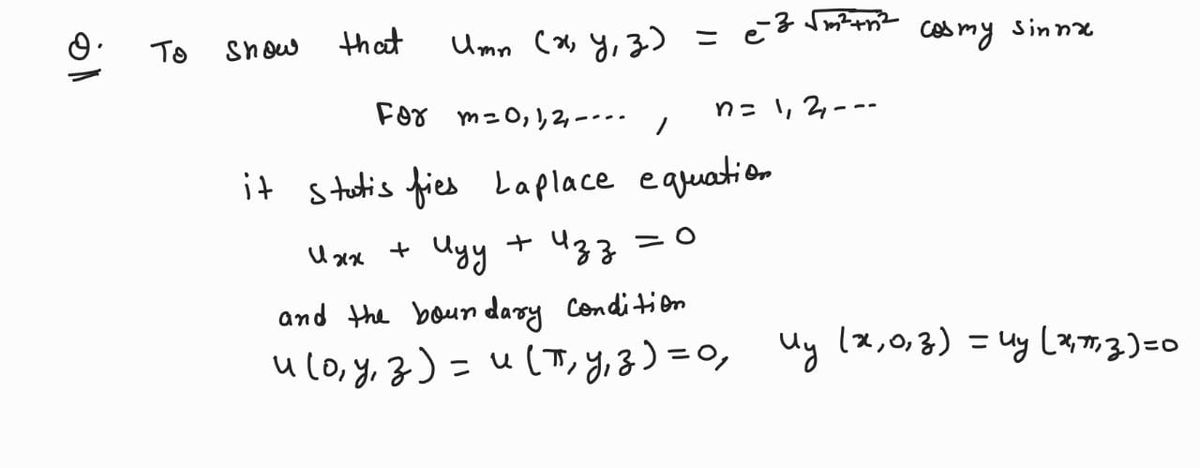 Q. To show that u_mn (x, y, z) = e^{-z √(m²+n²)} cos my sin nx
For m=0,1,2,---- , n= 1, 2,---
it statisfies Laplace equation
u_xx + u_yy + u_zz = 0
and the boundary Condition
u(0,y,z) = u(π,y,z)=0, u_y (x,0,z) = u_y (x,π,z)=0